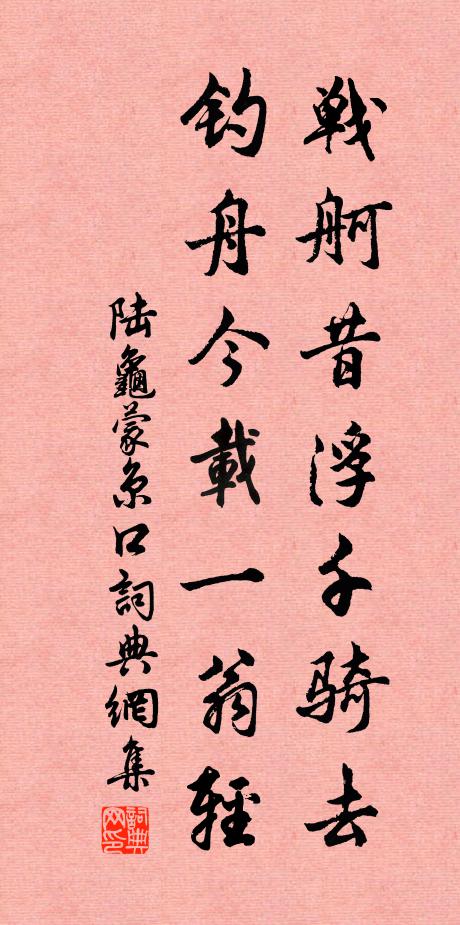 戦舸昔浮千騎去
釣舟今載一翁輕
陆龜蒙京口詞典網集
詞典网印